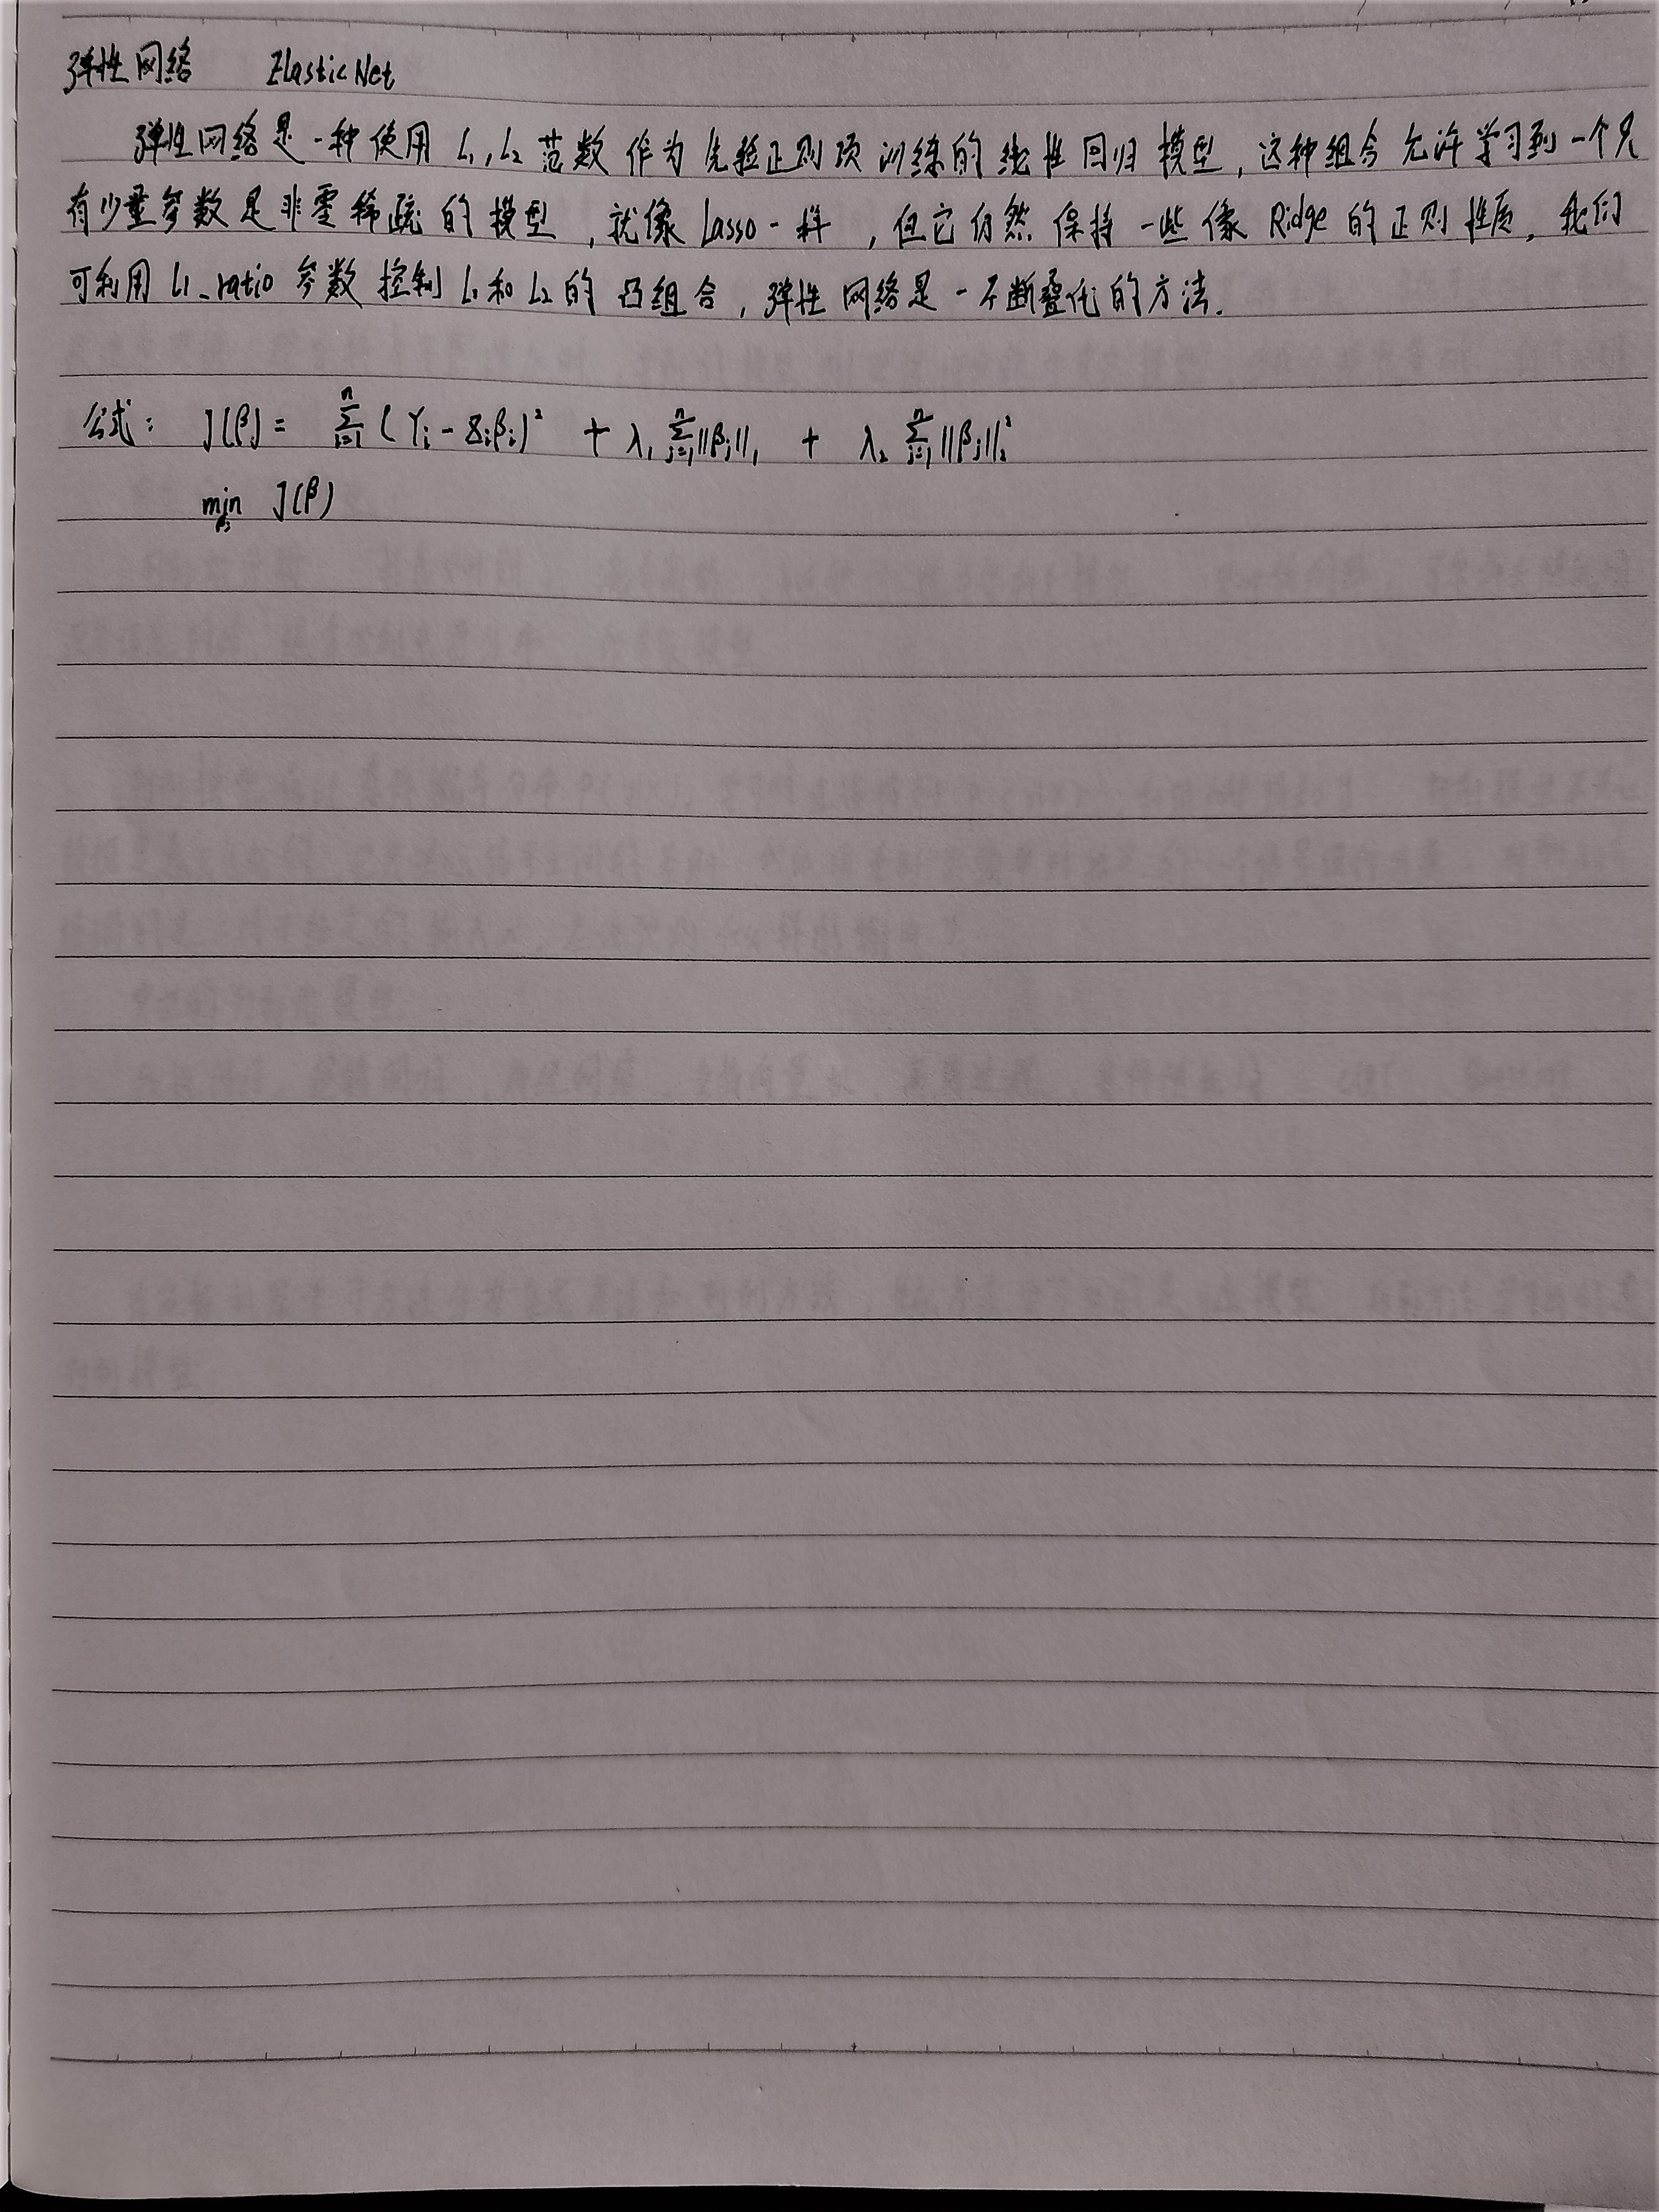 弹性网络 ElasticNet
弹性网络是一种使用 L₁,L₂ 范数作为先验正则项训练的线性回归模型,这种组合允许学习到一个只
有少量参数是非零稀疏的模型,就像Lasso一样,但它仍然保持一些像Ridge的正则性质,我们
可利用 L1_ratio 参数控制 L₁和L₂的凸组合,弹性网络是一不断叠代的方法.
公式: J(β) = ∑ⁿᵢ₌₁ (Yᵢ - Xᵢβᵢ)² + λ₁ ∑ⁿⱼ₌₁ ||βⱼ||₁ + λ₂ ∑ⁿⱼ₌₁ ||βⱼ||₂²
min J(β)